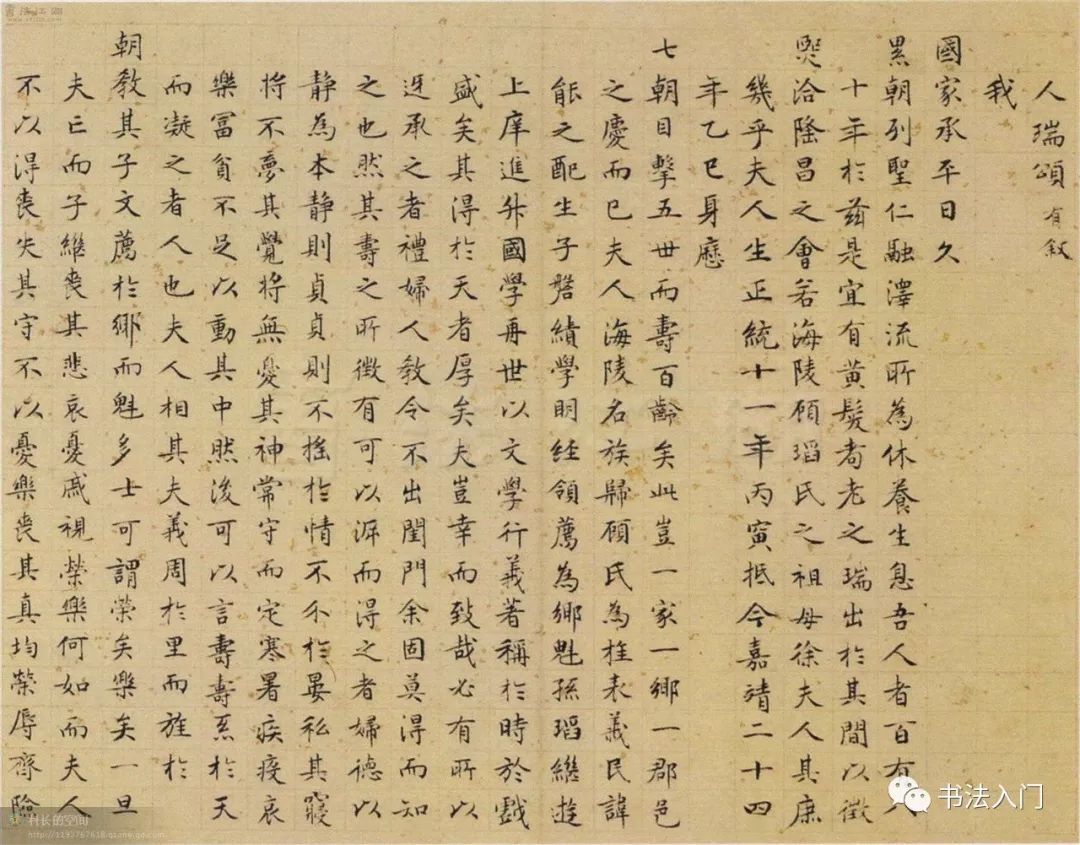 人瑞頌有敘
我
國家承平日久
累朝列聖仁融澤流所為休養生息吾人者百有
十年於茲是宜有黃髮耇老之瑞出於其間以徵
熙洽隆昌之會若海陵顧瑫氏之祖母徐夫人其庶
幾乎夫人生正統十一年丙寅抵今嘉靖二十四
年乙巳身歷
七朝目擊五世而壽百齡矣此豈一家一鄉一郡邑
之慶而已夫人海陵名族歸顧氏為旌表義民諱
能之配生子磐績學明經領薦為鄉魁孫瑫繼遊
上庠進升國學再世以文學行義著稱於時於戲
盛矣其得於天者厚矣夫豈幸而致哉必有所以
迓承之者禮婦人教令不出閨門余固莫得而知
之也然其壽之所徵有可以泝而得之者婦德以
靜為本靜則貞貞則不搖於情不尒於晏私其寢
將不夢其覺將無憂其神常守而定寒暑疾疫哀
樂富貧不足以動其中然後可以言壽壽系於天
而凝之者人也夫人相其夫義周於里而旌於
朝教其子文薦於鄉而魁多士可謂榮矣樂矣一旦
夫亡而子繼喪其悲哀憂戚視榮樂何如而夫人
不以得喪失其守不以憂樂喪其真均榮辱齊險
书法入门
书法江湖
村长的空间
http://1193767618.qzone.qq.com